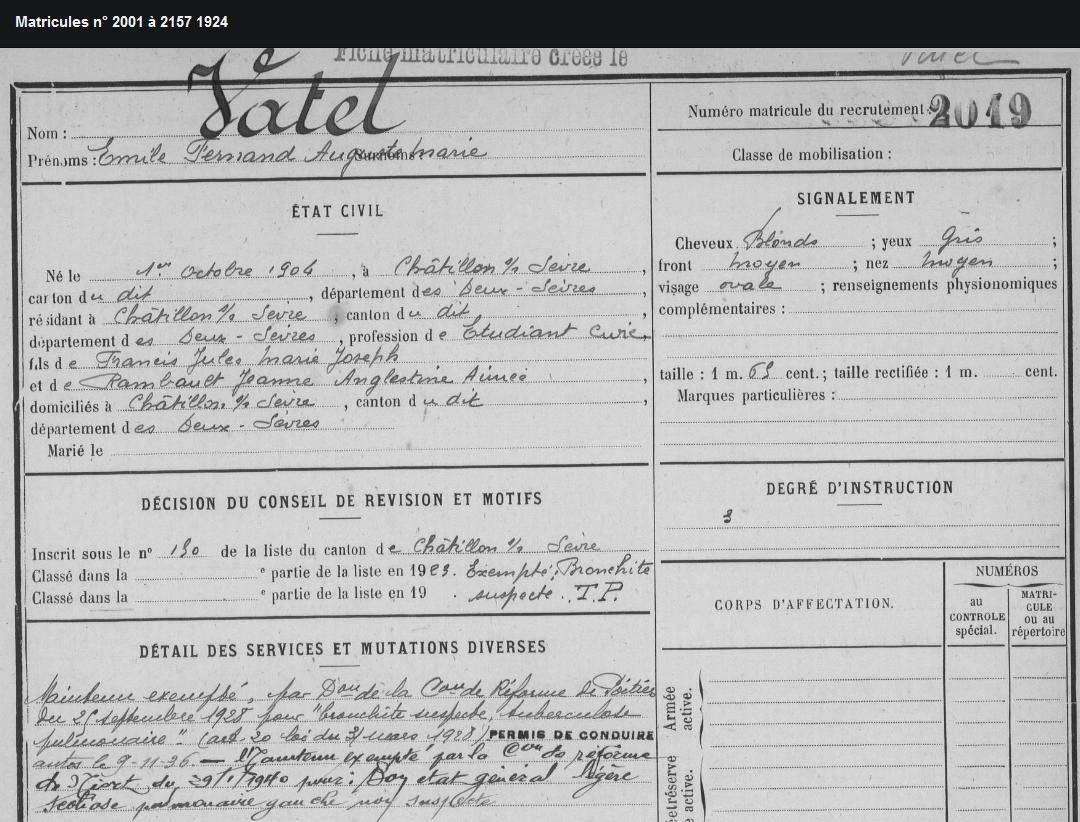 Matricules n° 2001 à 2157 1924
Fiche matriculaire créée le
Vatel
Nom :
Numéro matricule du recrutement : 2019
Prénoms : Emile Fernand Auguste Marie
Classe de mobilisation :
ÉTAT CIVIL
Né le 1er Octobre 1904, à Châtillon s/s Sèvre,
canton du dit, département des Deux-Sèvres,
résidant à Châtillon s/s Sèvre, canton du dit,
département des Deux-Sèvres, profession de Etudiant Curé,
fils de Francis Jules Marie Joseph
et de Rambault Jeanne Anglestine Aimée,
domiciliés à Châtillon s/s Sèvre, canton du dit,
département des Deux-Sèvres
Marié le
SIGNALEMENT
Cheveux Blonds ; yeux Gris ;
front moyen ; nez moyen ;
visage ovale ; renseignements physionomiques
complémentaires :
taille : 1 m. cent. ; taille rectifiée : 1 m. cent.
Marques particulières :
DÉCISION DU CONSEIL DE REVISION ET MOTIFS
Inscrit sous le n° de la liste du canton de Châtillon s/s Sèvre
Classé dans la e partie de la liste en 19 . Exempté, Bronchite
Classé dans la e partie de la liste en 19 . suspecte. T.P.
DEGRÉ D'INSTRUCTION
3
CORPS D'AFFECTATION.
NUMÉROS
au
CONTROLE
spécial.
MATRI-
CULE
ou au
répertoire
Armée
active.
et réserve
active.
DÉTAIL DES SERVICES ET MUTATIONS DIVERSES
Maintenu exempté, par Don de la Con de Réforme de Poitiers
du septembre 1928 pour "bronchite suspecte, tuberculose
pulmonaire". (art. 20 loi du 31 mars 1928) PERMIS DE CONDUIRE
autos le 9-11-26. — Maintenu exempté par la Con de réforme
de Niort du /1/1940 pour : Bon état général légère
pulmonaire gauche non suspecte